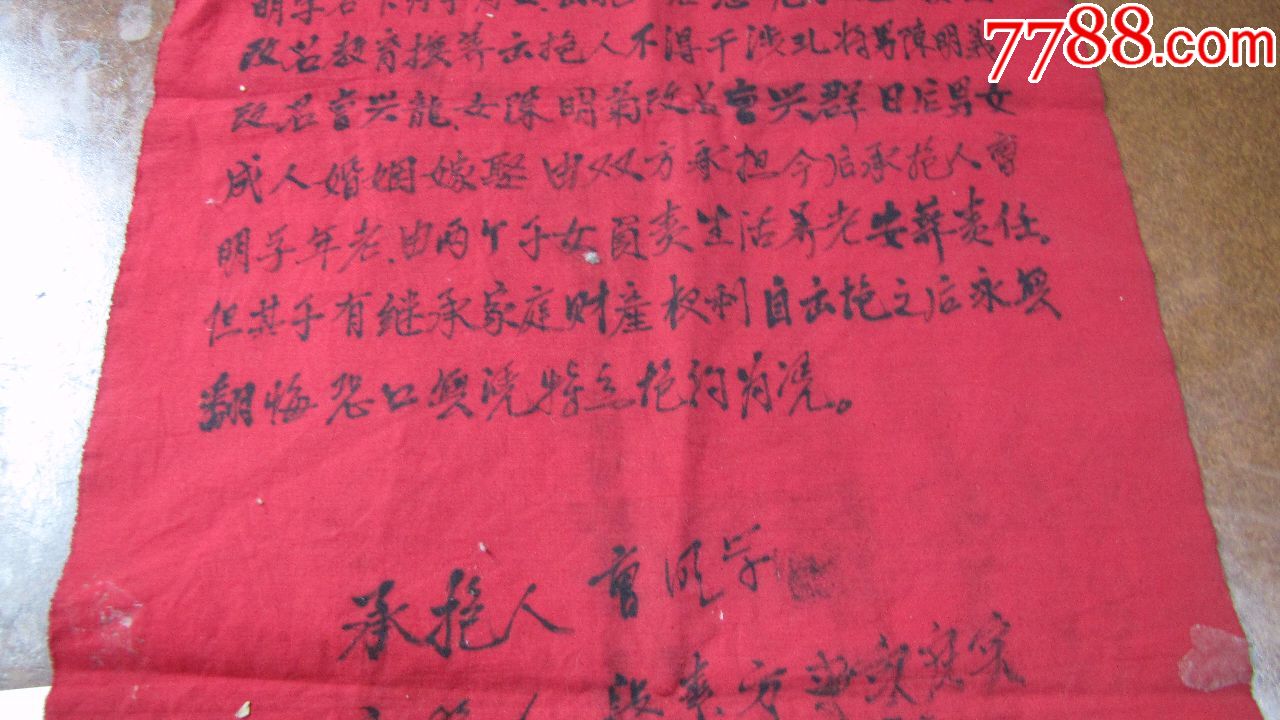 7788.com
明孚名下为子为女
改名教育抚养出抱人不得干涉孔将男陈明
改名曹兴龍、女陈明菊改名曹兴群日后男女
成人婚姻嫁娶由双方承担今后承抱人曹
明孚年老、由两个子女负责生活养老安葬责任、
但其子有继承家庭财產权利自出抱之后永無
翻悔恐口無凭特立抱約为凭。
承抱人 曹明孚
人 段素方